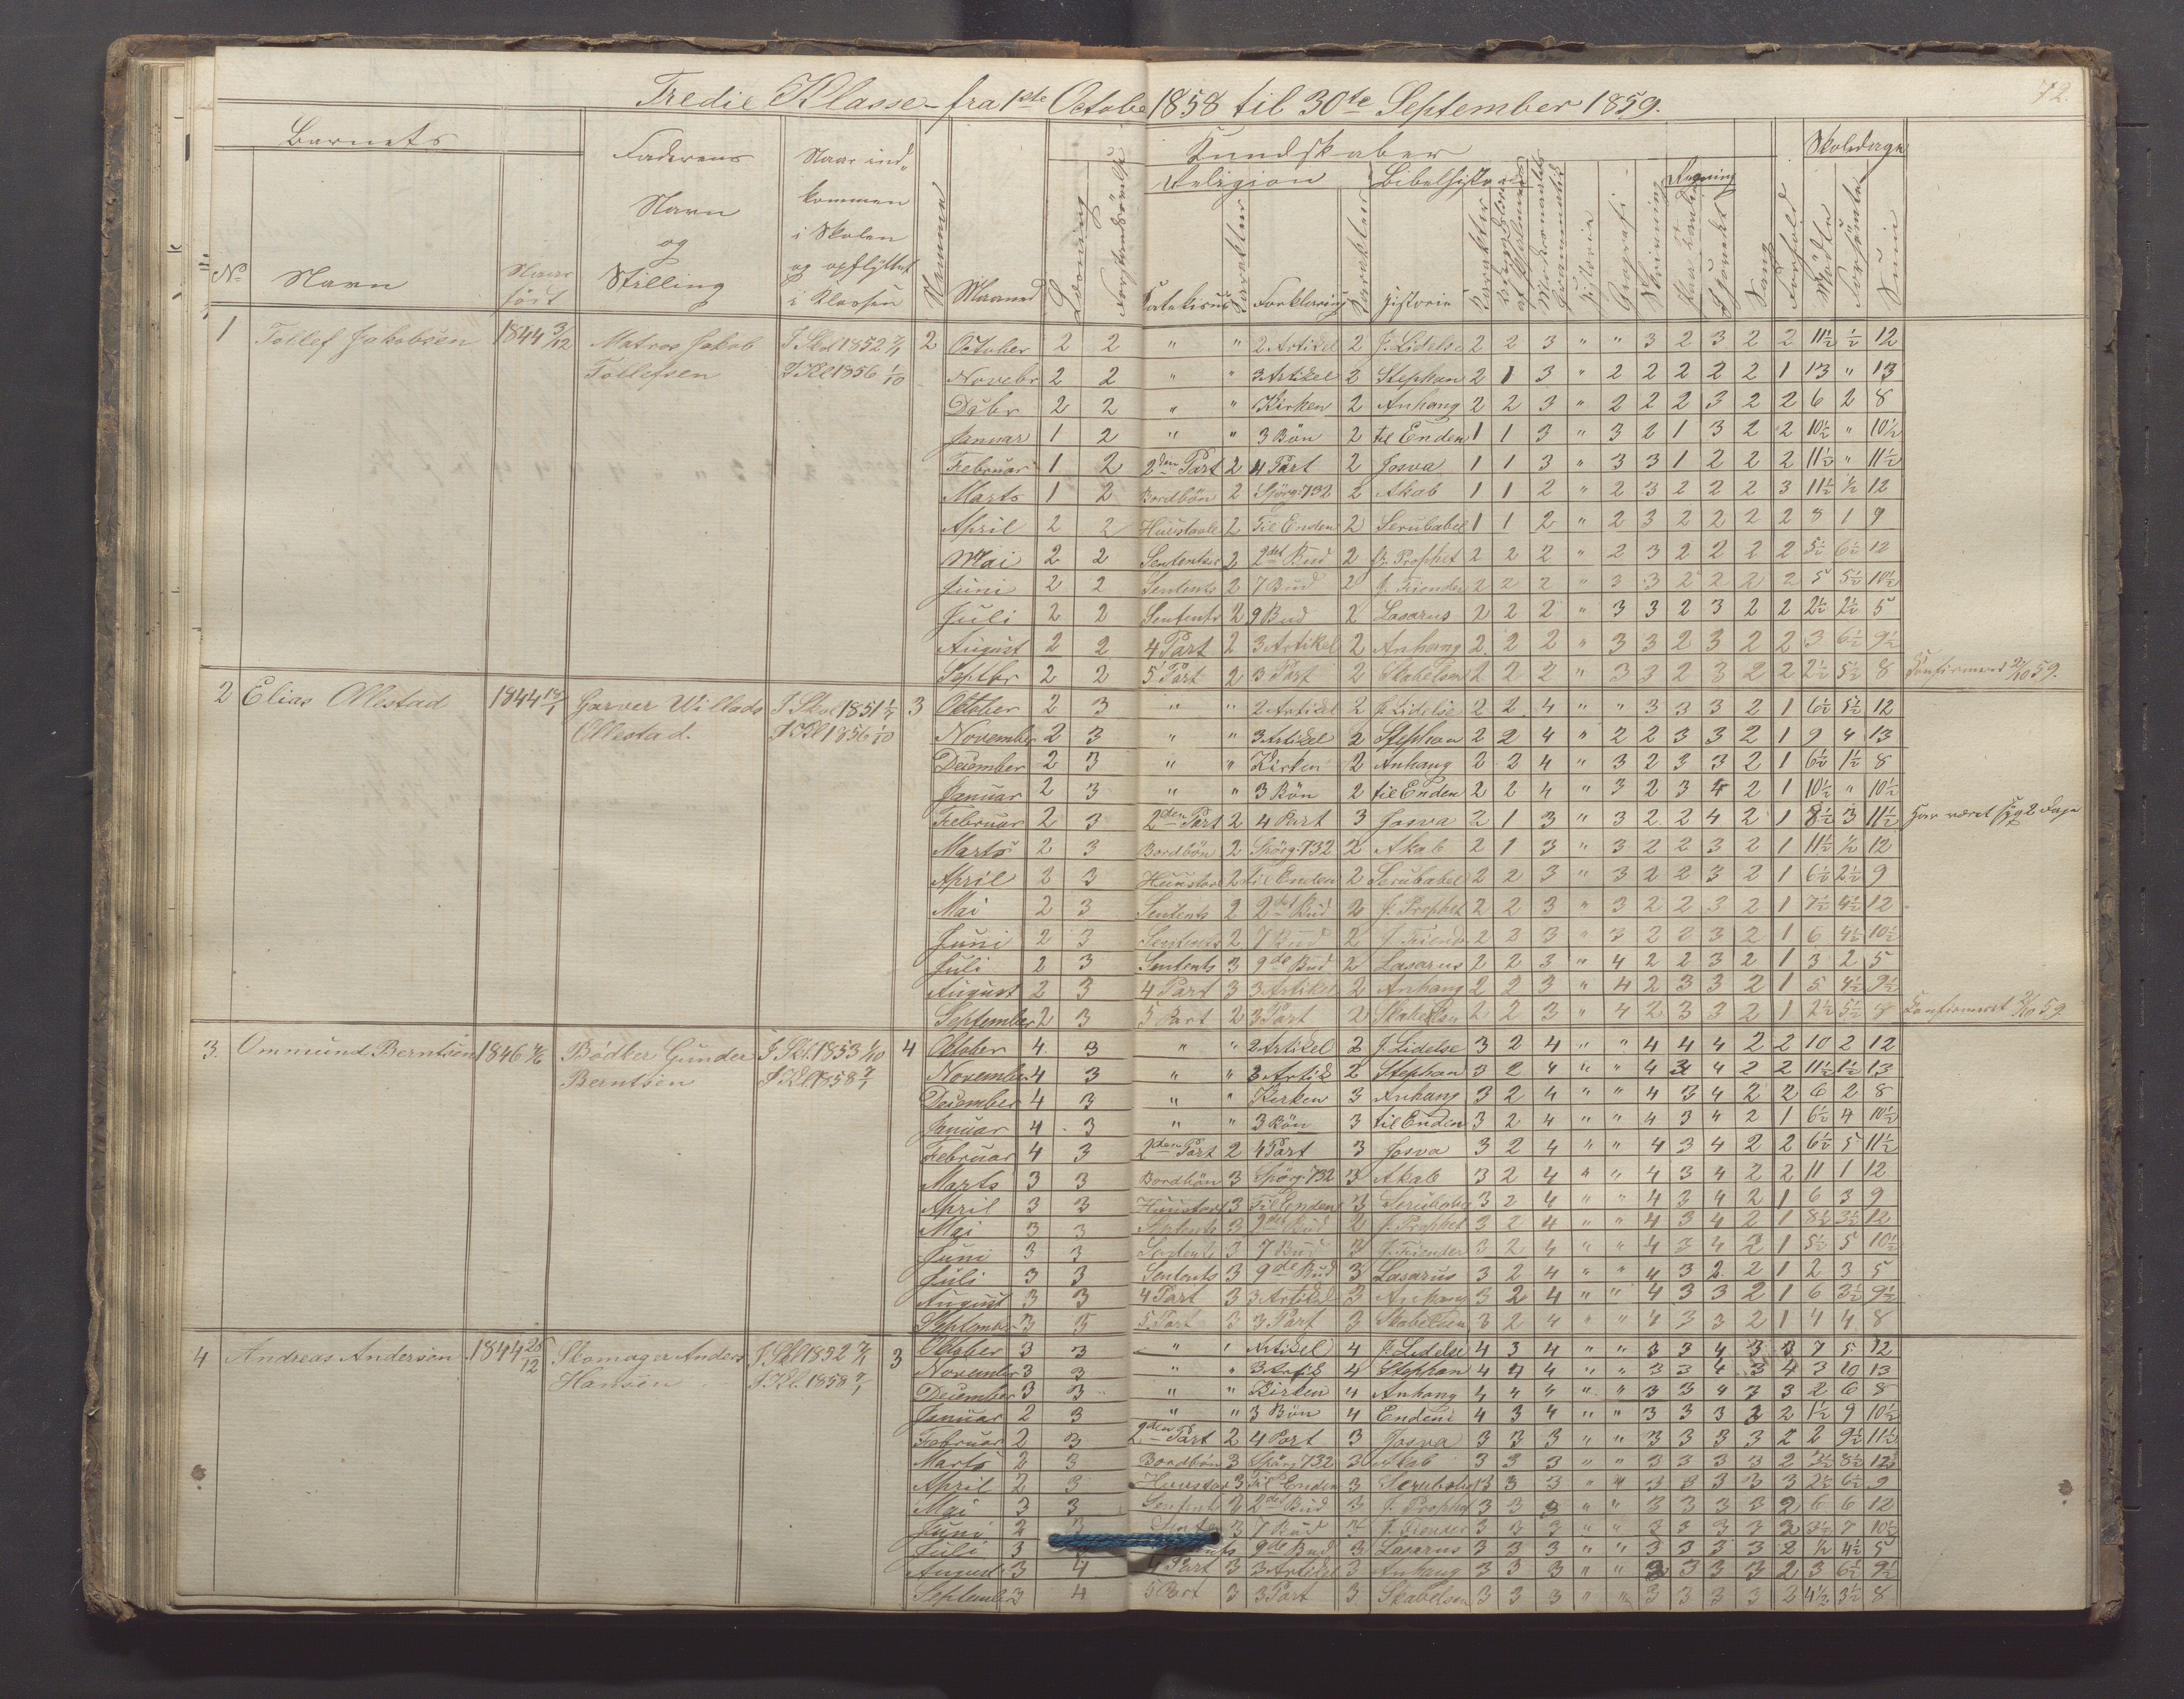 72.
Tredie Klasse fra 1ste Octobe 1858 til 30te September 1859.
Barnets
No
Navn
Naar født
Faderens
Navn
og
Stilling
Naar ind-
kommen
i Skolen
og opflyttet
i Klassen
Nummer
Maaned
Læsning
Forstandsøvelse
Kundskaber
Religion
Bibelhistorie
Katekismus
Karakter
Forklaring
Karakter
Historie
Karakter
Historie
Geografi
Skrivning
Regning
Sang
Forhold
Skoledage
Mødte
Forsømte
Sum
1 Tollef Jakobsen 1844 3/12 Matros Jakob I Skol 1852 2
Tollefsen I Kl 1856 1/10
October 2 2 " " 2 Artikel 2 J. Lidelse 2 2 3 " " 3 2 3 2 2 11½ ½ 12
Novebr 2 2 " " 3 Artikel 2 Stephan 2 1 3 " 2 2 2 2 2 1 13 " 13
Dcbr 2 2 " " Kirken 2 Anhang 2 2 3 " 2 2 2 3 2 2 6 2 8
Januar 1 2 " " 3 Bön 2 til Enden 1 1 3 " 3 2 1 3 2 2 10½ " 10½
Februar 1 2 2den Part 2 4 Part 2 Josva 1 1 3 " 3 3 1 2 2 2 11½ " 11½
Marts 1 2 Bordbön 2 Spörg. 732 2 Akab 1 1 2 " 2 3 2 2 2 3 11½ ½ 12
April 2 2 Huustavle 2 Til Enden 2 Serubabel 1 1 2 " 2 3 2 2 2 2 8 1 9
Mai 2 2 Sententser 2 2det Bud 2 J. Prophet 2 2 2 " 2 3 2 2 2 2 5½ 6½ 12
Juni 2 2 Sentents 2 7 Bud 2 J. Fiender 2 2 2 " 3 3 2 2 2 2 5 5½ 10½
Juli 2 2 Sentents 2 9 Bud 2 Lasarus 2 2 2 " 3 3 2 3 2 2 2½ 2½ 5
August 2 2 4 Part 2 3 Artikel 2 Anhang 2 2 2 " 3 3 2 3 2 2 3 6½ 9½
Septbr 2 2 5 Part 2 3 Part 2 Skabelsen 2 2 2 " 3 3 2 3 2 2 2½ 5½ 8 Konfirmeret 2/10 59.
2 Elias Ollestad 1844 Garver Willads I Skol 1851 3
Ollestad. I Kl 1856 1/10
October 2 3 " " 2 Artikel 2 J. Lidelse 2 2 4 " " 3 3 3 2 1 6½ 5½ 12
November 2 3 " " 3 Artikel 2 Stephan 2 2 4 " 2 2 3 3 2 1 9 4 13
December 2 3 " " Kirken 2 Anhang 2 2 4 " 3 2 3 3 2 1 6½ 1½ 8
Januar 2 3 " " 3 Bön 2 til Enden 2 2 4 " 3 2 3 4 2 1 10½ " 10½
Februar 2 3 2den Part 2 4 Part 3 Josva 2 1 3 " 3 2 2 4 2 1 8½ 3 11½ Har været syg 2 Dage
Marts 2 3 Bordbön 2 Spörg. 732 2 Akab 2 1 3 " 3 2 2 3 2 1 11½ ½ 12
April 2 3 Huustavl 2 til Enden 2 Serubabel 2 2 3 " 3 2 2 3 2 1 6½ 2½ 9
Mai 2 3 Sentents 2 2det Bud 2 J. Prophet 2 2 3 " 3 2 2 3 2 1 7½ 4½ 12
Juni 2 3 Sentents 2 7 Bud 2 J. Fiend 2 2 3 " 3 2 2 3 2 1 6 4½ 10½
Juli 2 3 Sentents 3 9de Bud 2 Lasarus 2 2 3 " 4 2 2 3 2 1 3 2 5
August 2 3 4 Part 3 3 Artikel 2 Anhang 2 2 3 " 4 2 3 3 2 1 5 4½ 9½
September 2 3 5 Part 2 3 Part 2 Skabelsen 2 2 3 " 4 2 3 3 2 1 2½ 5½ 8 Konfirmeret 2/10 59.
3. Ommund Berntsen 1846 Bödker Gunder I Skl. 1853 1/10 4
Berntsen I Kl 1858
October 4 3 " " 2 Artikel 2 J. Lidelse 3 2 4 " " 4 4 4 2 2 10 2 12
November 4 3 " " 3 Artik 2 Stephan 3 2 4 " " 4 3 4 2 2 11½ 1½ 13
December 4 3 " " Kirken 3 Anhang 3 2 4 " " 4 3 4 2 2 6 2 8
Januar 4 3 " " 3 Bön 3 til Enden 3 2 4 " " 4 3 4 2 1 6½ 4 10½
Februar 4 3 2den Part 2 4 Part 3 Josva 3 2 4 " " 4 3 4 2 2 6½ 5 11½
Marts 3 3 Bordbön 3 Spörg. 732 3 Akab 3 2 4 " " 4 3 4 2 2 11 1 12
April 3 3 Huustavl 3 Til Enden 3 Serubabel 3 2 4 " " 4 3 4 2 1 6 3 9
Mai 3 3 Sentents 3 2det Bud 2 J. Prophet 3 2 4 " " 4 3 4 2 1 8½ 3½ 12
Juni 3 3 Sentents 3 7 Bud 3 J. Fiender 3 2 4 " " 4 3 4 2 1 5½ 5 10½
Juli 3 3 Sentents 3 9de Bud 3 Lasarus 3 2 4 " " 4 3 2 2 1 2 3 5
August 3 3 4 Part 3 3 Artikel 3 Anhang 3 2 4 " " 4 3 3 2 1 6 3½ 9½
September 3 3 5. Part 3 3 Part 3 Skabelsen 3 2 4 " " 4 3 3 2 1 4 4 8
4 Andreas Andersen 1844 28/12 Skomager Anders I Skl 1852 3
Hansen I Kl. 1858
October 3 3 " " Artikel 4 J. Lidelse 4 3 4 " " 3 3 4 3 3 7 5 12
November 3 3 " " 3 Artik 4 Stephan 4 4 4 " " 3 3 4 3 4 3 10 13
December 3 3 " " Kirken 4 Anhang 4 4 4 " " 3 3 4 3 3 2 6 8
Januar 2 3 " " 3 Bön 4 Enden 4 3 4 " " 3 3 3 3 2 1½ 9 10½
Februar 2 3 2den Part 2 4 Part 3 Josva 3 3 3 " " 3 3 3 3 2 2 9½ 11½
Marts 2 3 Bordbön 3 Spörg. 732 3 Akab 3 3 3 " " 3 3 3 3 2 3½ 8½ 12
April 2 3 Huustav 3 Til Enden 3 Serubabel 3 3 3 " " 3 3 3 3 3 2½ 6½ 9
Mai 3 3 Sentents 2 2det Bud 3 J. Prophet 3 3 3 " " 3 3 3 3 2 6 6 12
Juni 2 3 7 Bud 3 J. Fiender 3 3 3 " " 3 3 3 3 3 3½ 7 10½
Juli 3 9de Bud 3 Lasarus 3 3 3 " " 3 3 3 3 2 ½ 4½ 5
August 3 4 4 Part 3 3 Artikel 3 Anhang 3 3 3 " " 3 3 3 3 2 3 6½ 9½
September 3 4 5 Part 3 3 Part 3 Skabelsen 3 3 3 " " 3 3 3 3 2 4½ 3½ 8